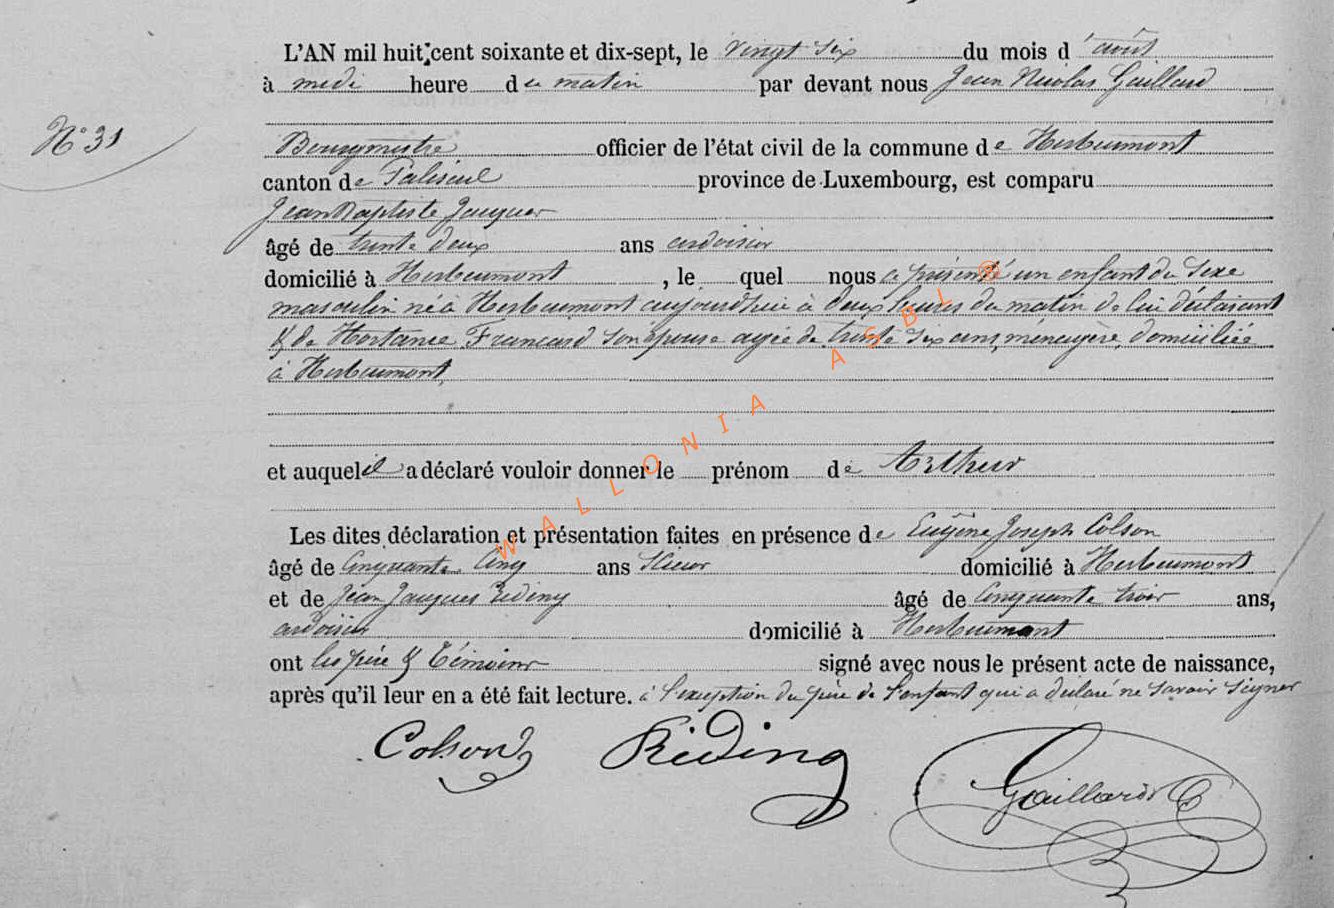 L'AN mil huit cent soixante et dix-sept, le vingt six du mois d'août
à midi heure du matin par devant nous Jean Nicolas Gaillard
N° 31
Bourgmestre officier de l'état civil de la commune de Herbeumont
canton de Paliseul province de Luxembourg, est comparu
Jean Baptiste Jacques
âgé de trente deux ans ardoisier
domicilié à Herbeumont, le quel nous a présenté un enfant du sexe
masculin né à Herbeumont aujourd'hui à deux heures du matin de lui déclarant
& de Hortance Francard son épouse agée de trente six ans, ménagère, domiciliée
à Herbeumont,
et auquel il a déclaré vouloir donner le prénom de Arthur
Les dites déclaration et présentation faites en présence de Eugène Joseph Colson
âgé de Cinquante Cinq ans domicilié à Herbeumont
et de Jean Jacques Réding âgé de Cinquante trois ans,
ardoisier domicilié à Herbeumont
ont les père & témoins signé avec nous le présent acte de naissance,
après qu'il leur en a été fait lecture. à l'exception du père de l'enfant qui a déclaré ne savoir signer
Colson Réding Gaillard
WALLONIA ASBL ®